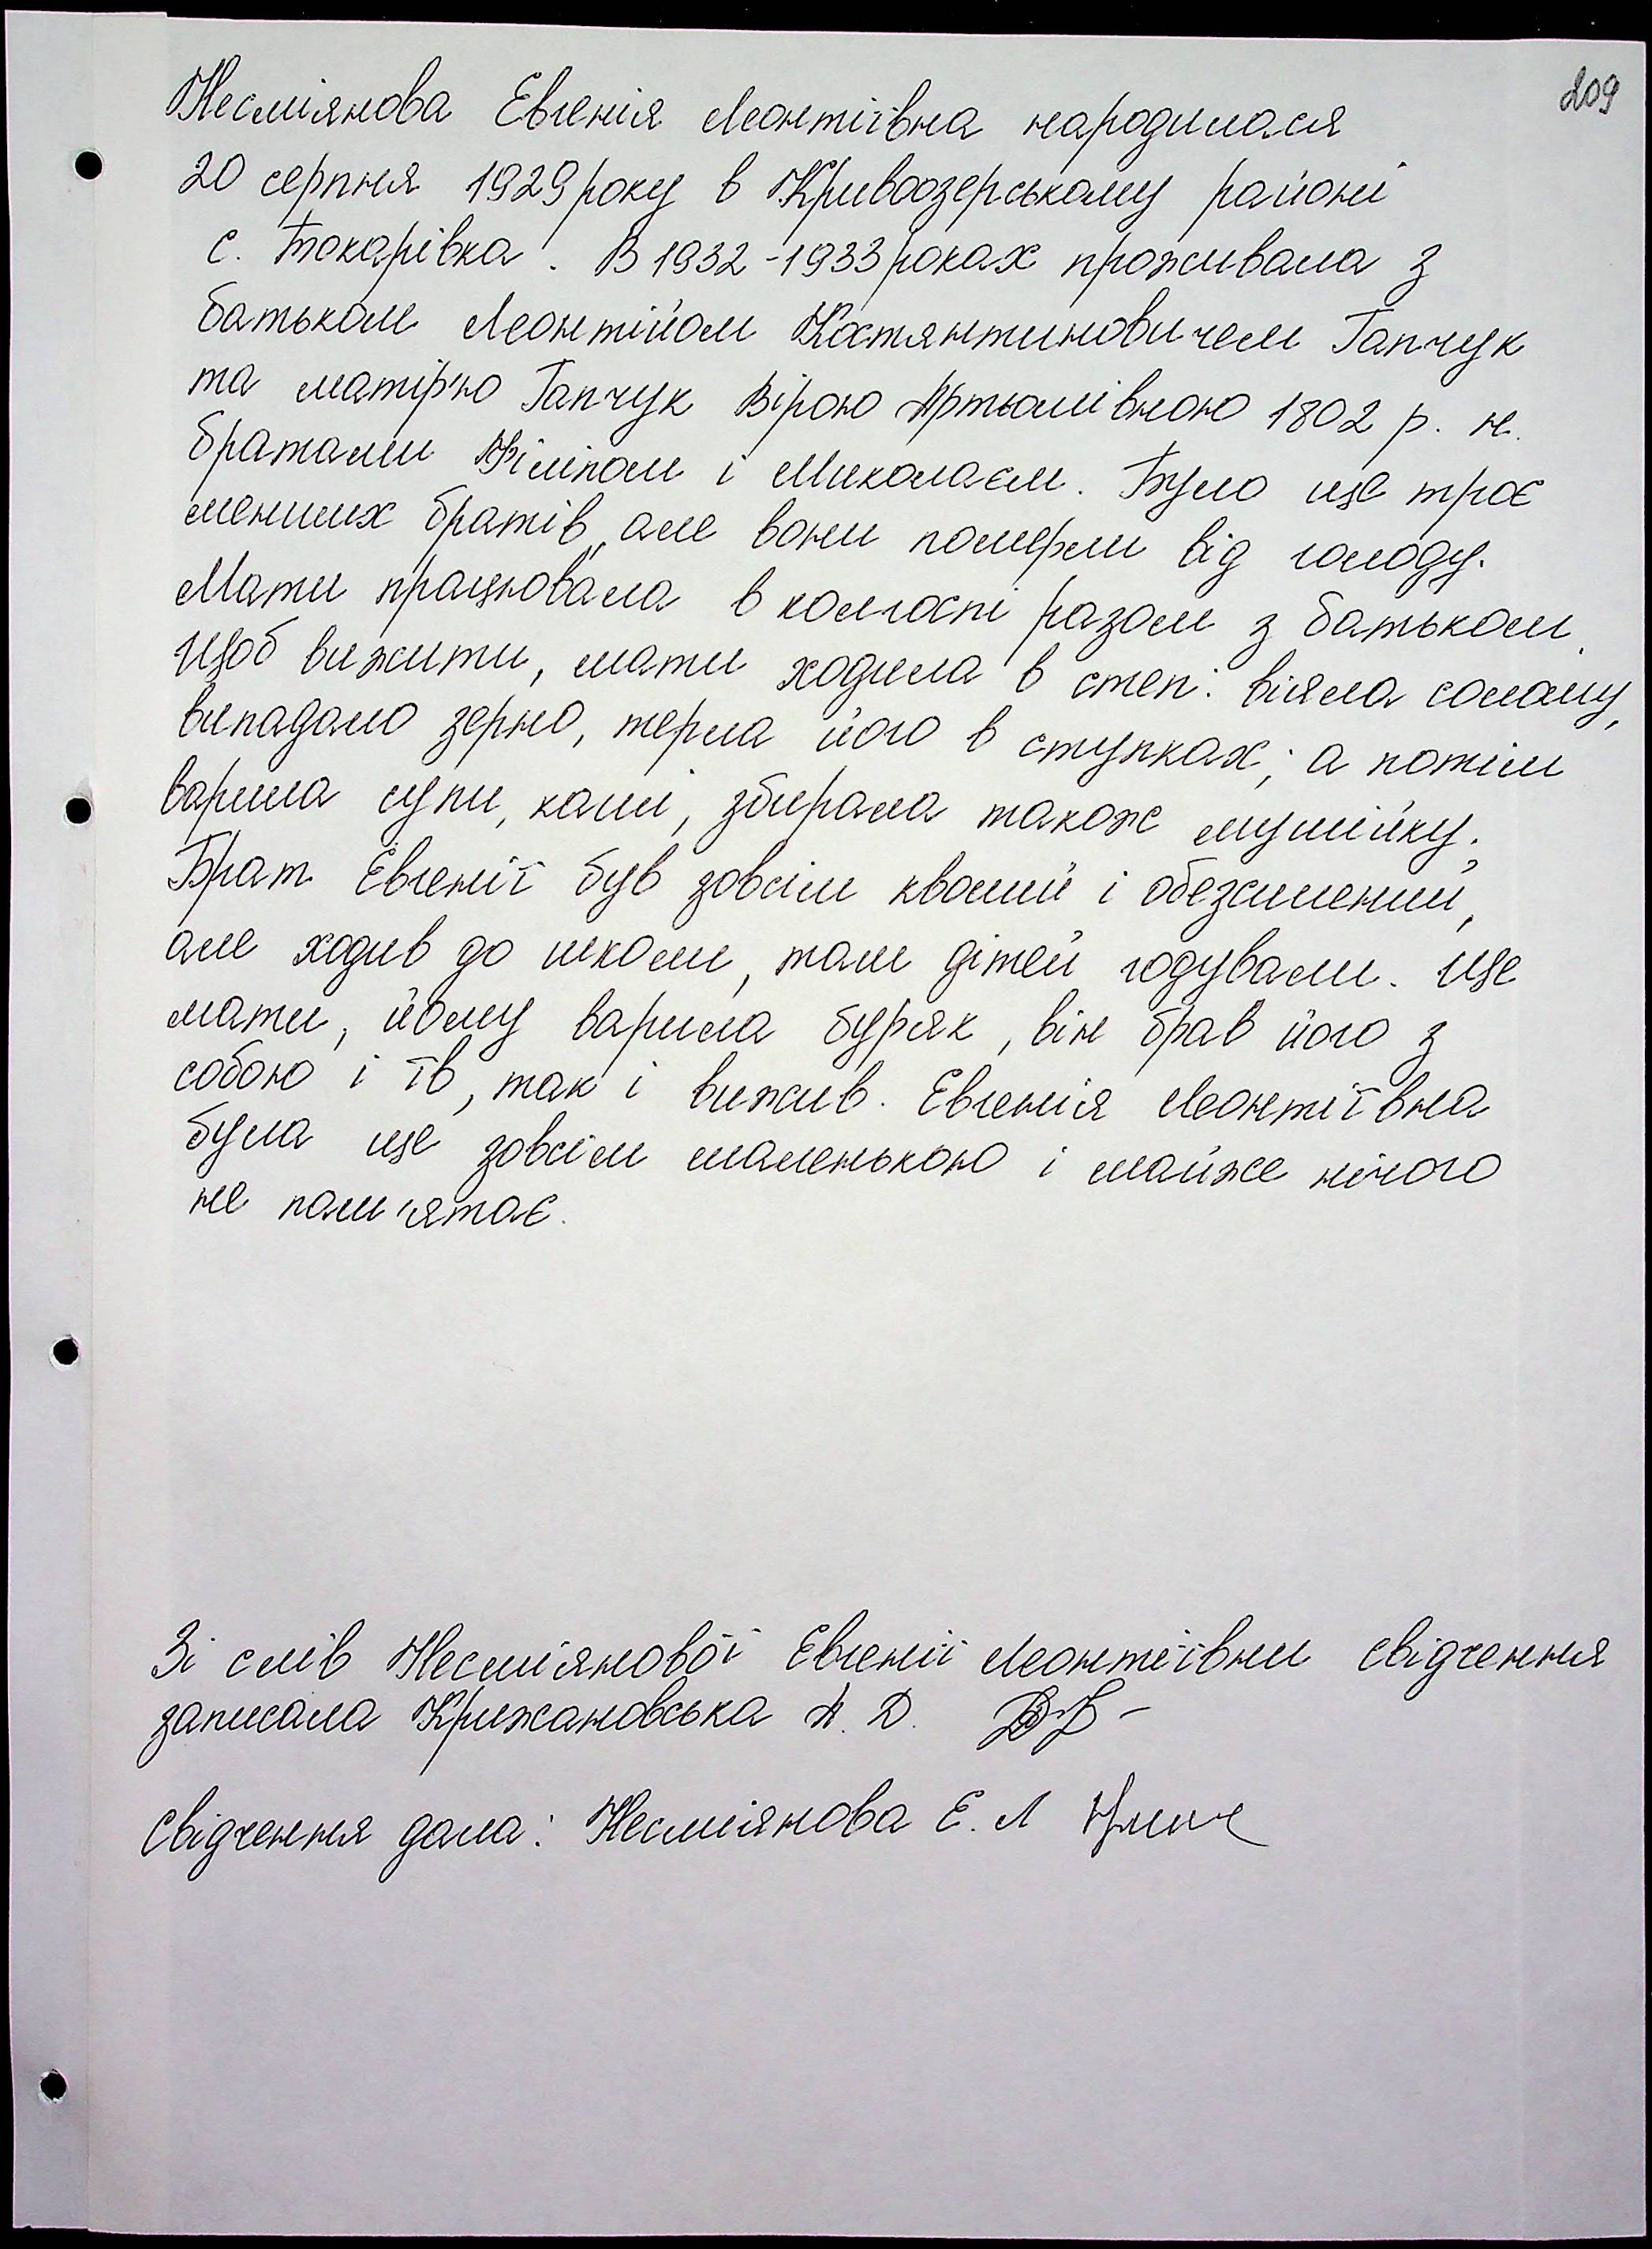 209
Несміянова Евгенія Леонтіївна народилася
20 серпня 1929 року в Кривоозерському районі
с. Токарівка. В 1932-1933 роках проживала з
батьком Леонтійом Костянтиновичем Гапчук
та матір'ю Гапчук Вірою Артьомівною 1802 р. н.
братами Філіпом і Миколаєм. Було ще троє
менших братів, але вони померли від голоду.
Мати працювала в колгоспі разом з батьком.
Щоб вижити, мати ходила в степ: віяла солому,
випадало зерно, терла його в ступках, а потім
варила супи, каші, збирала також мушійку.
Брат Євгенії був зовсім кволий і обезсилений,
але ходив до школи, там дітей годували. Ще
мати, йому варила буряк, він брав його з
собою і їв, так і вижив. Евгенія Леонтіївна
була ще зовсім маленькою і майже нічого
не пам'ятає.
Зі слів Несміянової Евгенії Леонтіївни свідчення
записала Крижановська А. Д.
Свідчення дала: Несміянова Е. Л